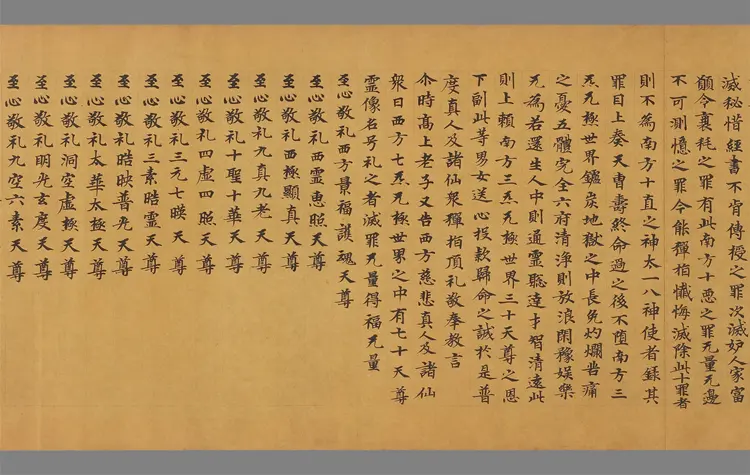 滅秘惜經書不肯傳授之罪次滅妒人家富
願令衰耗之罪有此南方十惡之罪无量无邊
不可測憶之罪今能彈指懺悔滅除此十罪者
則不為南方十直之神太一八神使者錄其
罪目上奏天曹壽終命過之後不墮南方三
炁无極世界鑪炭地獄之中長免灼爛苦痛
之憂五體完全六府清淨則放浪閑豫娛樂
无為若還生人中則通靈聡達才智清遠此
則上賴南方三炁无極世界三十天尊之恩
下副此等男女送心投款歸命之誠於是普
度真人及諸仙衆彈指頂礼敬奉教言
尒時髙上老子又告西方慈悲真人及諸仙
衆曰西方七炁无極世界之中有七十天尊
靈像名号礼之者滅罪无量得福无量
至心敬礼西方景福護魂天尊
至心敬礼西靈恵照天尊
至心敬礼西極顯真天尊
至心敬礼九真九老天尊
至心敬礼十聖十華天尊
至心敬礼四虛四照天尊
至心敬礼三元七暎天尊
至心敬礼三素晧靈天尊
至心敬礼晧映普光天尊
至心敬礼太華太極天尊
至心敬礼洞空虛極天尊
至心敬礼明光玄度天尊
至心敬礼九空六素天尊